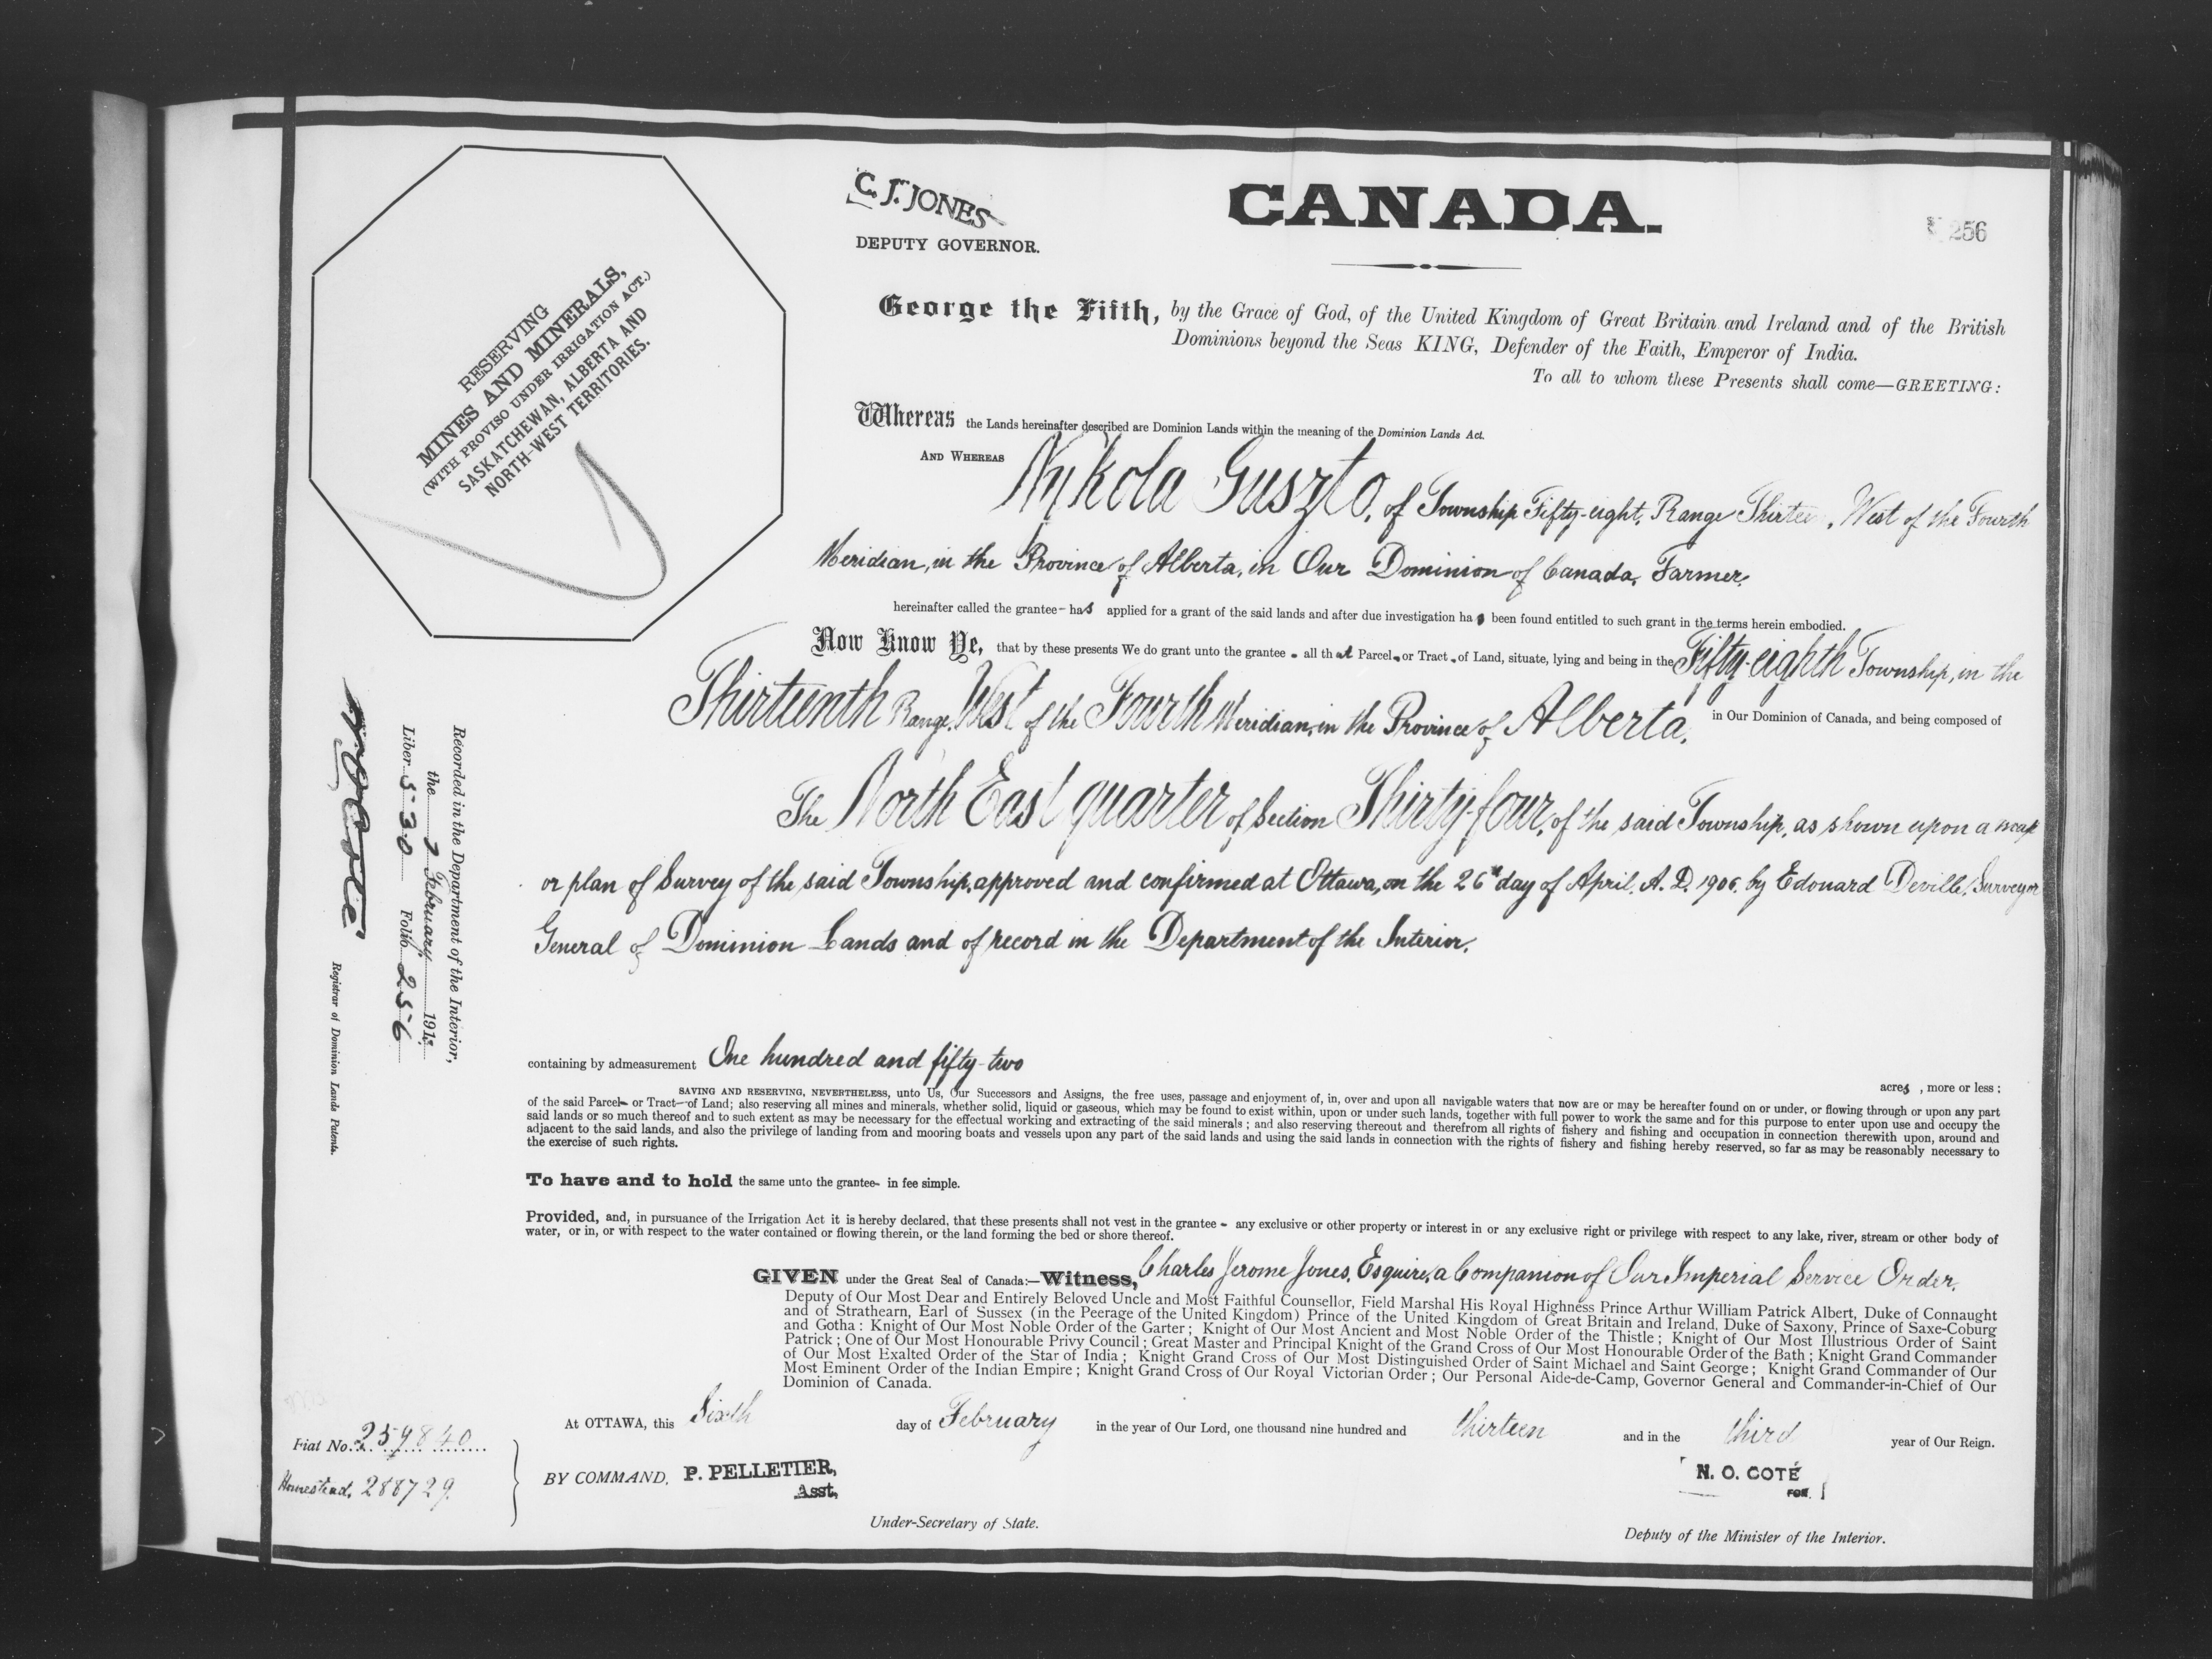 C. J. JONES
DEPUTY GOVERNOR.
CANADA.
256
RESERVING
MINES AND MINERALS,
(WITH PROVISO UNDER IRRIGATION ACT.)
SASKATCHEWAN, ALBERTA AND
NORTH-WEST TERRITORIES.
George the Fifth, by the Grace of God, of the United Kingdom of Great Britain and Ireland and of the British
Dominions beyond the Seas KING, Defender of the Faith, Emperor of India.
To all to whom these Presents shall come—GREETING:
Whereas the Lands hereinafter described are Dominion Lands within the meaning of the Dominion Lands Act.
AND WHEREAS Nykola Guszto, of Township Fifty-eight, Range Thirteen, West of the Fourth
Meridian, in the Province of Alberta, in Our Dominion of Canada, Farmer,
hereinafter called the grantee - has applied for a grant of the said lands and after due investigation has been found entitled to such grant in the terms herein embodied.
Now Know Ye, that by these presents We do grant unto the grantee - all that Parcel - or Tract - of Land, situate, lying and being in the Fifty-eighth Township, in the
Thirteenth Range, West of the Fourth Meridian, in the Province of Alberta, in Our Dominion of Canada, and being composed of
The North East quarter of Section Thirty-four, of the said Township, as shown upon a map
or plan of Survey of the said Township, approved and confirmed at Ottawa, on the 26th day of April, A. D. 1906, by Edouard Deville, Surveyor
General of Dominion Lands and of record in the Department of the Interior.
Recorded in the Department of the Interior,
the 7 February 1913.
Liber 530 Folio 256
N. O. Coté
Registrar of Dominion Lands Patents.
containing by admeasurement One hundred and fifty-two
acres, more or less;
SAVING AND RESERVING, NEVERTHELESS, unto Us, Our Successors and Assigns, the free uses, passage and enjoyment of, in, over and upon all navigable waters that now are or may be hereafter found on or under, or flowing through or upon any part
of the said Parcel - or Tract - of Land; also reserving all mines and minerals, whether solid, liquid or gaseous, which may be found to exist within, upon or under such lands, together with full power to work the same and for this purpose to enter upon use and occupy the
said lands or so much thereof and to such extent as may be necessary for the effectual working and extracting of the said minerals; and also reserving thereout and therefrom all rights of fishery and fishing and occupation in connection therewith upon, around and
adjacent to the said lands, and also the privilege of landing from and mooring boats and vessels upon any part of the said lands and using the said lands in connection with the rights of fishery and fishing hereby reserved, so far as may be reasonably necessary to
the exercise of such rights.
To have and to hold the same unto the grantee - in fee simple.
Provided, and, in pursuance of the Irrigation Act it is hereby declared, that these presents shall not vest in the grantee - any exclusive or other property or interest in or any exclusive right or privilege with respect to any lake, river, stream or other body of
water, or in, or with respect to the water contained or flowing therein, or the land forming the bed or shore thereof.
GIVEN under the Great Seal of Canada:—Witness, Charles Jerome Jones, Esquire, a Companion of Our Imperial Service Order,
Deputy of Our Most Dear and Entirely Beloved Uncle and Most Faithful Counsellor, Field Marshal His Royal Highness Prince Arthur William Patrick Albert, Duke of Connaught
and of Strathearn, Earl of Sussex (in the Peerage of the United Kingdom) Prince of the United Kingdom of Great Britain and Ireland, Duke of Saxony, Prince of Saxe-Coburg
and Gotha: Knight of Our Most Noble Order of the Garter; Knight of Our Most Ancient and Most Noble Order of the Thistle; Knight of Our Most Illustrious Order of Saint
Patrick; One of Our Most Honourable Privy Council; Great Master and Principal Knight of the Grand Cross of Our Most Honourable Order of the Bath; Knight Grand Commander
of Our Most Exalted Order of the Star of India; Knight Grand Cross of Our Most Distinguished Order of Saint Michael and Saint George; Knight Grand Commander of Our
Most Eminent Order of the Indian Empire; Knight Grand Cross of Our Royal Victorian Order; Our Personal Aide-de-Camp, Governor General and Commander-in-Chief of Our
Dominion of Canada.
At OTTAWA, this Sixth day of February in the year of Our Lord, one thousand nine hundred and thirteen and in the third year of Our Reign.
Fiat No. 259840
Homestead, 288729.
BY COMMAND, P. PELLETIER,
Asst,
Under-Secretary of State.
N. O. COTÉ
FOR
Deputy of the Minister of the Interior.